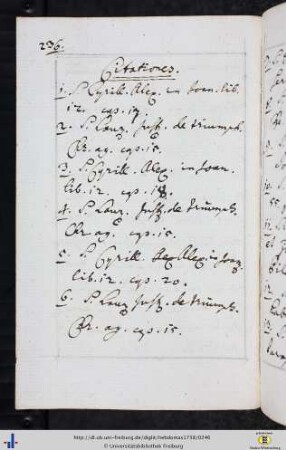 236.
Citationes.
1. S. Cyrill. Alex. in Joan. lib.
12. cap. 17
2. S. Laur. Just. de triumph.
Chr. ag. cap. 15.
3. S. Cyrill. Alex. in Joan.
lib. 12. cap. 18.
4. S. Laur. Just. de triumph.
Chr. ag. cap. 15.
5. S. Cyrill. Alex in Joan.
lib. 12. cap. 20.
6. S. Laur Just. de triumph.
Chr. ag. cap. 15.
http://dl.ub.uni-freiburg.de/diglit/hebdomas1738/0246
© Universitätsbibliothek Freiburg